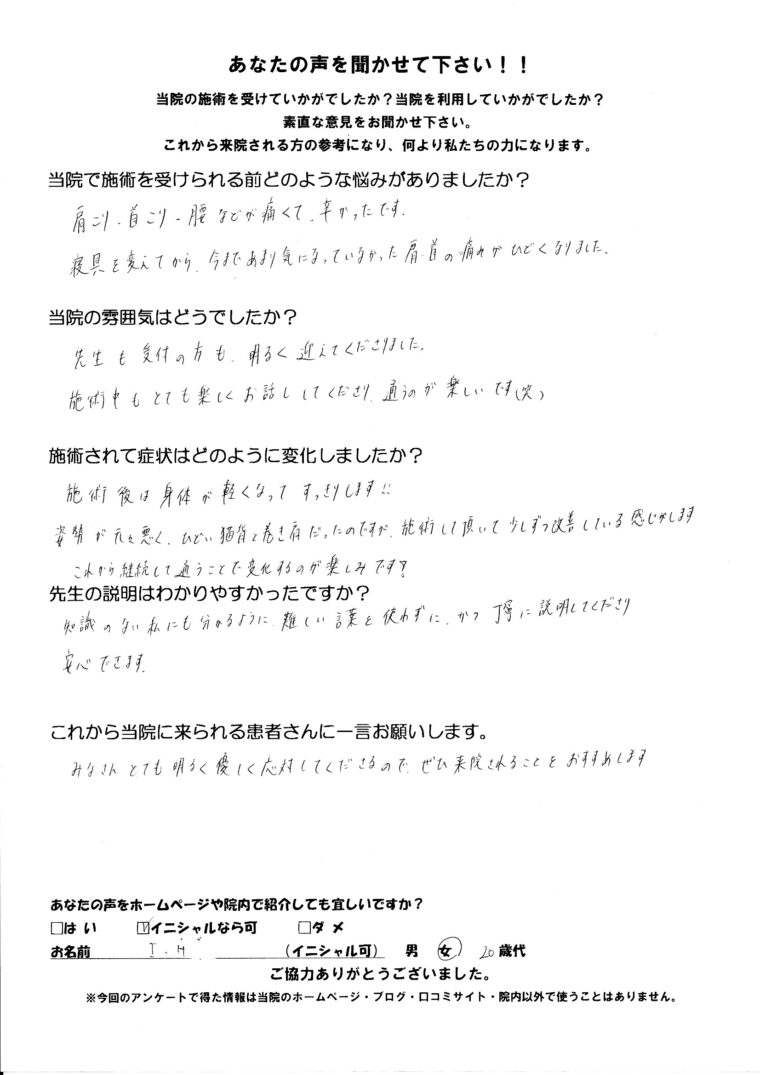 あなたの声を聞かせて下さい！！
当院の施術を受けていかがでしたか？当院を利用していかがでしたか？
素直な意見をお聞かせ下さい。
これから来院される方の参考になり、何より私たちの力になります。
当院で施術を受けられる前どのような悩みがありましたか？
肩こり・首こり・腰などが痛くて、辛かったです。
寝具を変えてから、今まであまり気になっていなかった肩・首の痛みがひどくなりました。
当院の雰囲気はどうでしたか？
先生も受付の方も、明るく迎えてくださりました。
施術中もとても楽しくお話ししてくださり、通うのが楽しいです(笑)
施術されて症状はどのように変化しましたか？
施術後は身体が軽くなってすっきりします!!
姿勢が元々悪く、ひどい猫背と巻き肩だったのですが、施術して頂いて少しずつ改善している感じがします
これから継続して通うことで変化するのが楽しみです?
先生の説明はわかりやすかったですか？
知識のない私にも分かるように、難しい言葉を使わずに、かつ丁寧に説明してくださり
安心できます。
これから当院に来られる患者さんに一言お願いします。
みなさんとても明るく優しく応対してくださるので、ぜひ来院されることをおすすめします
あなたの声をホームページや院内で紹介しても宜しいですか？
□はい ☑イニシャルなら可 □ダメ
お名前 I.H (イニシャル可) 男 女 20歳代
ご協力ありがとうございました。
※今回のアンケートで得た情報は当院のホームページ・ブログ・口コミサイト・院内以外で使うことはありません。